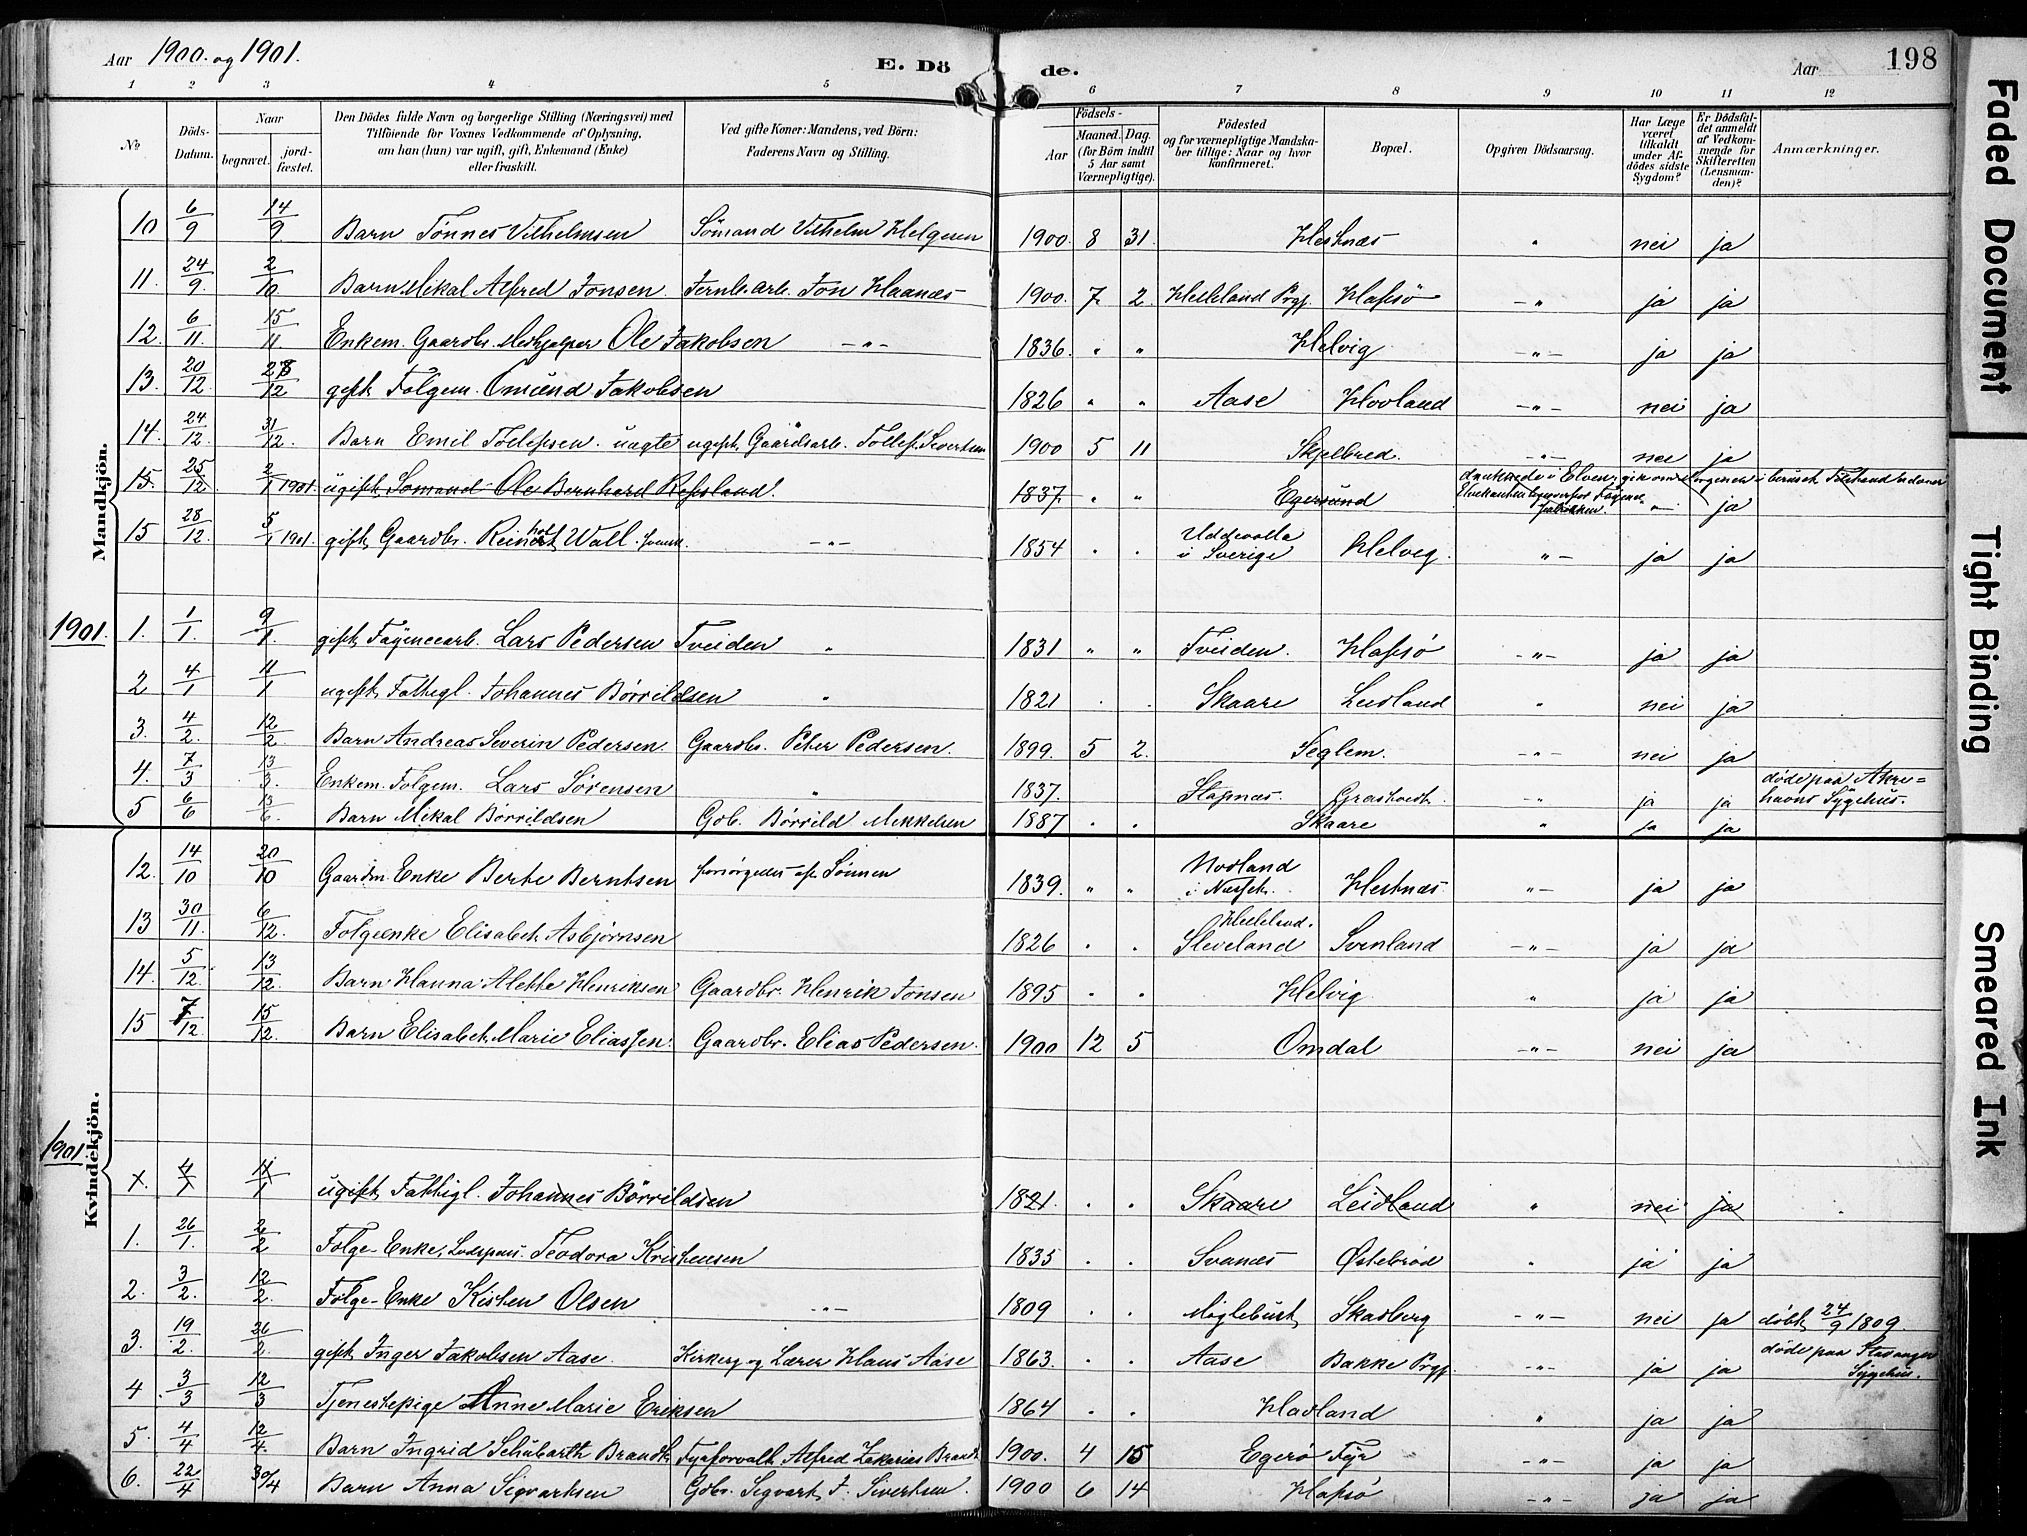 Aar 1900. og 1901. E. Dö de. Aar 198
1 2 3 4 5 6 7 8 9 10 11 12
№ Döds-Datum. Naar begravet. jord-fæstet. Den Dödes fulde Navn og borgerlige Stilling (Næringsvei) med Tilföiende for Voxnes Vedkommende af Oplysning, om han (hun) var ugift, gift, Enkemand (Enke) eller fraskilt. Ved gifte Koner: Mandens, ved Börn: Faderens Navn og Stilling. Aar Födsels- Maaned. Dag. (for Börn indtil 5 Aar samt Værnepligtige). Födested og for værnepligtige Mandskaber tillige: Naar og hvor konfirmeret. Bopæl. Opgiven Dödsaarsag. Har Læge været tilkaldt under Afdödes sidste Sygdom? Er Dödsfaldet anmeldt af Vedkommende for Skifteretten (Lensmanden)? Anmærkninger.
Mandkjön.
10 6/9 14/9 Barn Tönnes Vilhelmsen Sömand Vilhelm Helgesen 1900. 8 31. Hestnæs " nei ja
11. 24/9 2/10 Barn Mikal Alfred Jonsen. Jernb. arb. Jon Haanæs 1900. 7 2. Helleland Prgj. Hafsö -"- ja ja
12. 6/11. 15/11 Enkem. Gaardbr. Medhjælper Ole Jakobsen -"- 1836. " " Helvig -"- ja ja
13. 20/12. 28/12 gift Folgem. Omund Jakobsen 1826 " " Aase Hovland -"- nei ja
14. 24/12. 31/12. Barn Emil Tollefsen. uægte ugift Gaardsarb. Tollef Severtsen 1900 5 11 Skjelbred. -"- nei ja
15. 25/12 2/1 1901. ugift Sømand Ole Bernhard Refsland. 1837. " " Egersund druknede i Elven; gik om i beruset Tilstand Elvekanten Fayencefabrikken. -"- ja
15 28/12 5/1 1901. gift Gaardbr. Reinholt Wall. svensk -"- 1854 " " Uddevalla i Sverige Helvig. "- ja ja
1901. 1. 1/1. 9/1. gift Fayencearb. Lars Pedersen Tveiden " 1831 " " Tveiden. Hafsø -"- ja ja
2 4/1 11/1 ugift Fattigl. Johannes Børrildsen " 1821 . . Skaare Leidland " nei ja
3. 4/2. 12/2. Barn Andreas Severin Pedersen. Gaardbr. Peter Pedersen. 1899. 5 2. Seglem. -"- nei ja
4. 7/3 13/3. Enkem. Folgem. Lars Sørensen " 1837. Stapnæs. Grastvedt -"- ja ja døde paa Akrehavns Sygehus.
5 6/6 13/6. Barn Mikal Börrildsen Gdb. Börrild Mikkelsen 1887 . . Skaare " ja ja
Kvindekjön.
12. 14/10 20/10 Gaardm. Enke Berte Berntsen forsörgedes af Sønnen 1839. " " Modland i Næsset. Hestnæs. "- ja ja
13 30/11. 6/12. Folgeenke Elisabet Asbjörnsen 1826 . . Helleland. Sleveland Svenland -"- ja ja
14. 5/12. 13/12. Barn Hanna Alette Henriksen Gaardbr. Henrik Jonsen 1895 . . Helvig " ja ja
15 7/12 15/12. Barn Elisabet Marie Eliassen. Gaardbr. Elias Pedersen. 1900 12 5 Omdal -"- nei ja
1901. x. 4/1 11/1 ugift Fattigl. Johannes Börrildsen 1821. . . Skaare Leidland " nei ja
1. 26/1. 2/2 Folge-Enke, Teodora Kristensen 1835 . . Svanes Østebrød " ja ja
2. 3/2. 12/2. Folge-Enke Kisten Olsen -"- 1809 . . Migletvedt Skadberg -"- nei ja döbt 24/9 1809.
3. 19/2. 26/2. gift Inger Jakobsen Aase. Kirkesg. og Lærer Hans Aase 1863. . . Aase Bakke Prgj. -"- ja ja døde paa Stavanger Sygehus.
4 3/3 12/3 Tjenestepige Anne Marie Eriksen 1864 . . Hadland " ja ja
5. 4/4 12/4. Barn Ingrid Schübarth Brandt Fyrforvalt. Alfred Zakarias Brandt 1900. 4 15 Egerø Fyr -"- ja ja
6. 22/4 30/4 Barn Anna Sigvartsen Gdbr. Sigvart J. Sivertsen. 1900 6 14 Hafsö -"- ja ja
Faded Document
Tight Binding
Smeared Ink